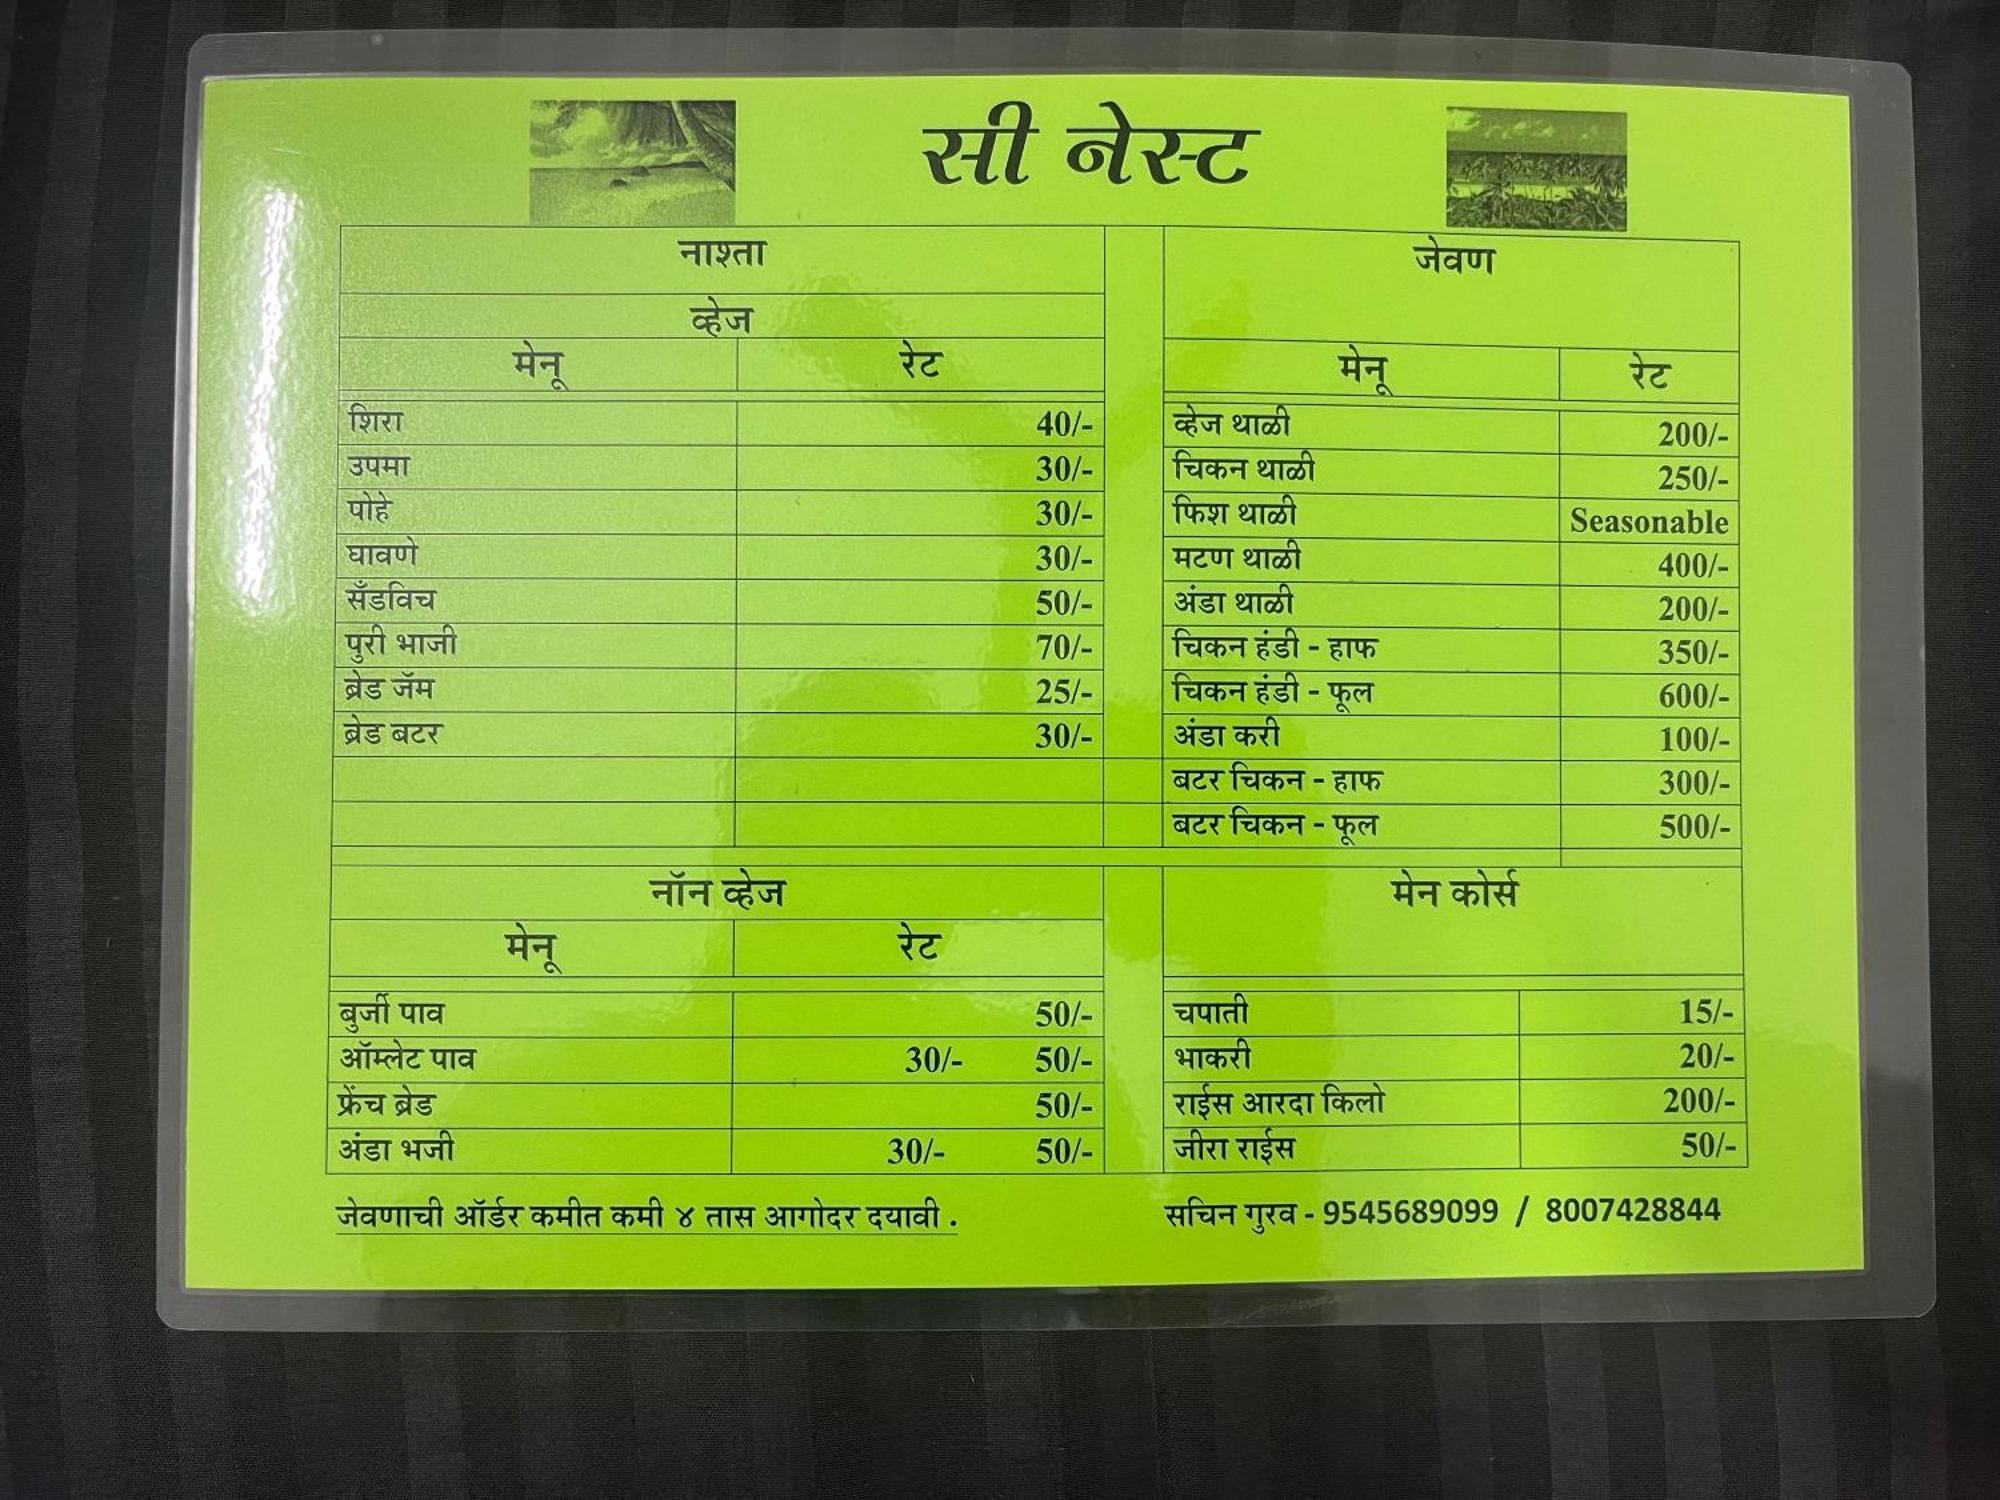 सी नेस्ट
नाश्ता
व्हेज
मेनू रेट
शिरा 40/-
उपमा 30/-
पोहे 30/-
घावणे 30/-
सँडविच 50/-
पुरी भाजी 70/-
ब्रेड जॅम 25/-
ब्रेड बटर 30/-
जेवण
मेनू रेट
व्हेज थाळी 200/-
चिकन थाळी 250/-
फिश थाळी Seasonable
मटण थाळी 400/-
अंडा थाळी 200/-
चिकन हंडी - हाफ 350/-
चिकन हंडी - फूल 600/-
अंडा करी 100/-
बटर चिकन - हाफ 300/-
बटर चिकन - फूल 500/-
नॉन व्हेज
मेनू रेट
बुर्जी पाव 50/-
ऑम्लेट पाव 30/- 50/-
फ्रेंच ब्रेड 50/-
अंडा भजी 30/- 50/-
मेन कोर्स
चपाती 15/-
भाकरी 20/-
राईस आरदा किलो 200/-
जीरा राईस 50/-
जेवणाची ऑर्डर कमीत कमी ४ तास आगोदर दयावी .
सचिन गुरव - 9545689099 / 8007428844